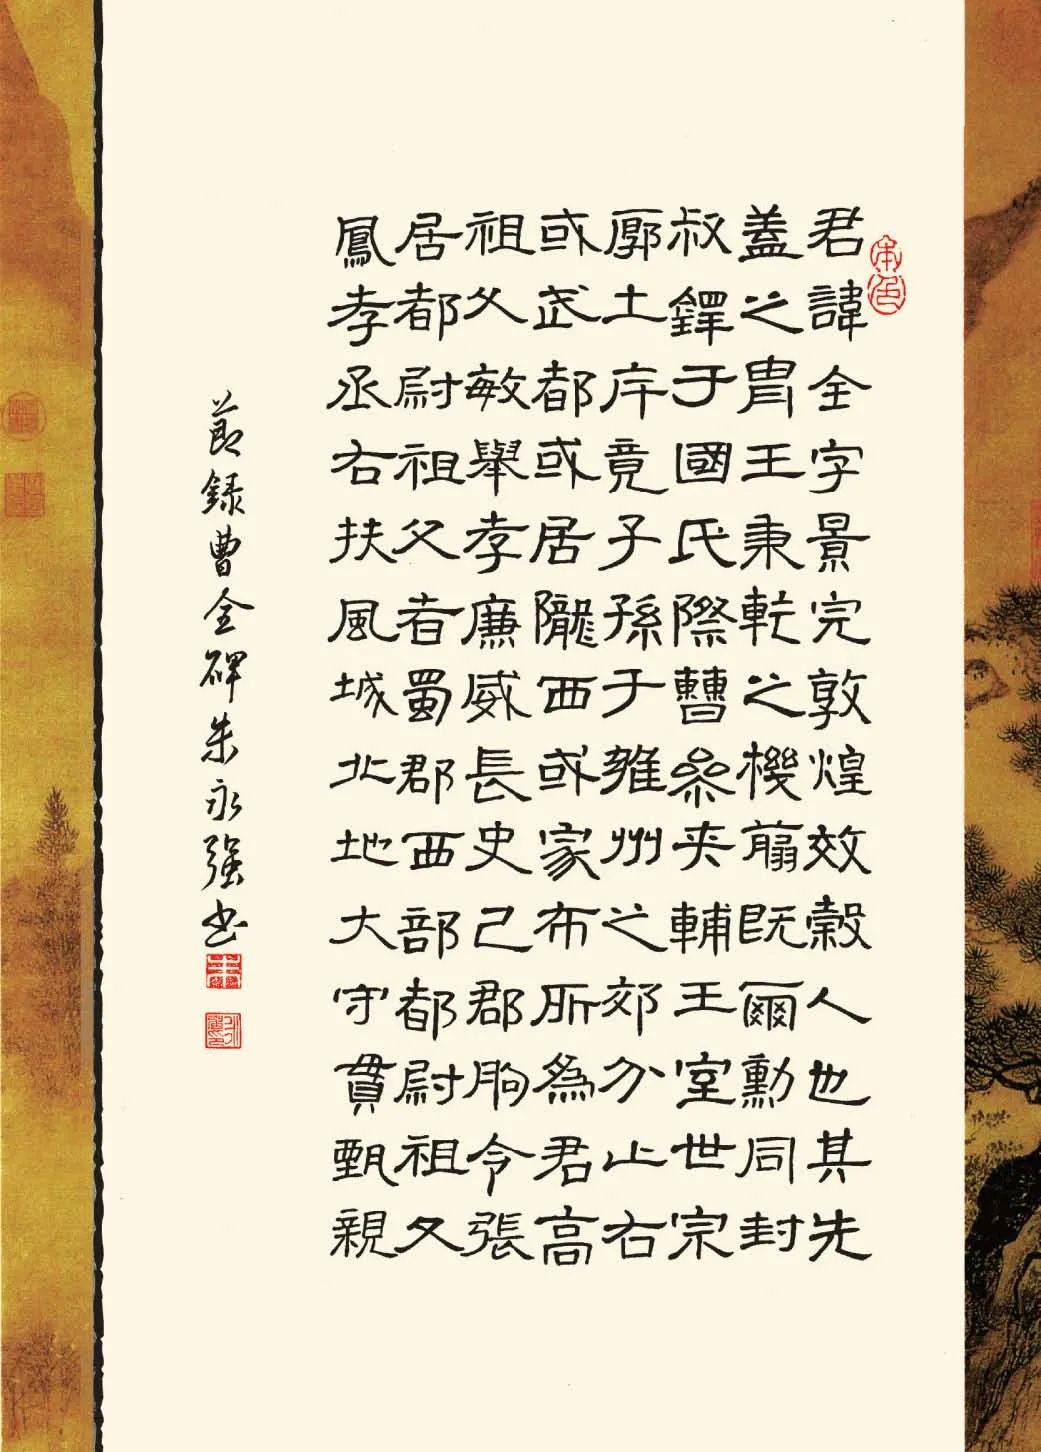 本色
君諱全字景完敦煌效穀人也其先
蓋之胄王秉乾之機翦既爾勳同封
叔鐸于國氏際曹叅夾輔王室世宗
廓土斥竟子孫于雍州之郊分止右
或武都或居隴西或家布所為君高
祖父敏舉孝廉威長史己郡朐令張
居都尉祖父者蜀郡西部都尉祖又
鳳孝丞右扶風城北地大守貫甄親
節録曹全碑朱永强书